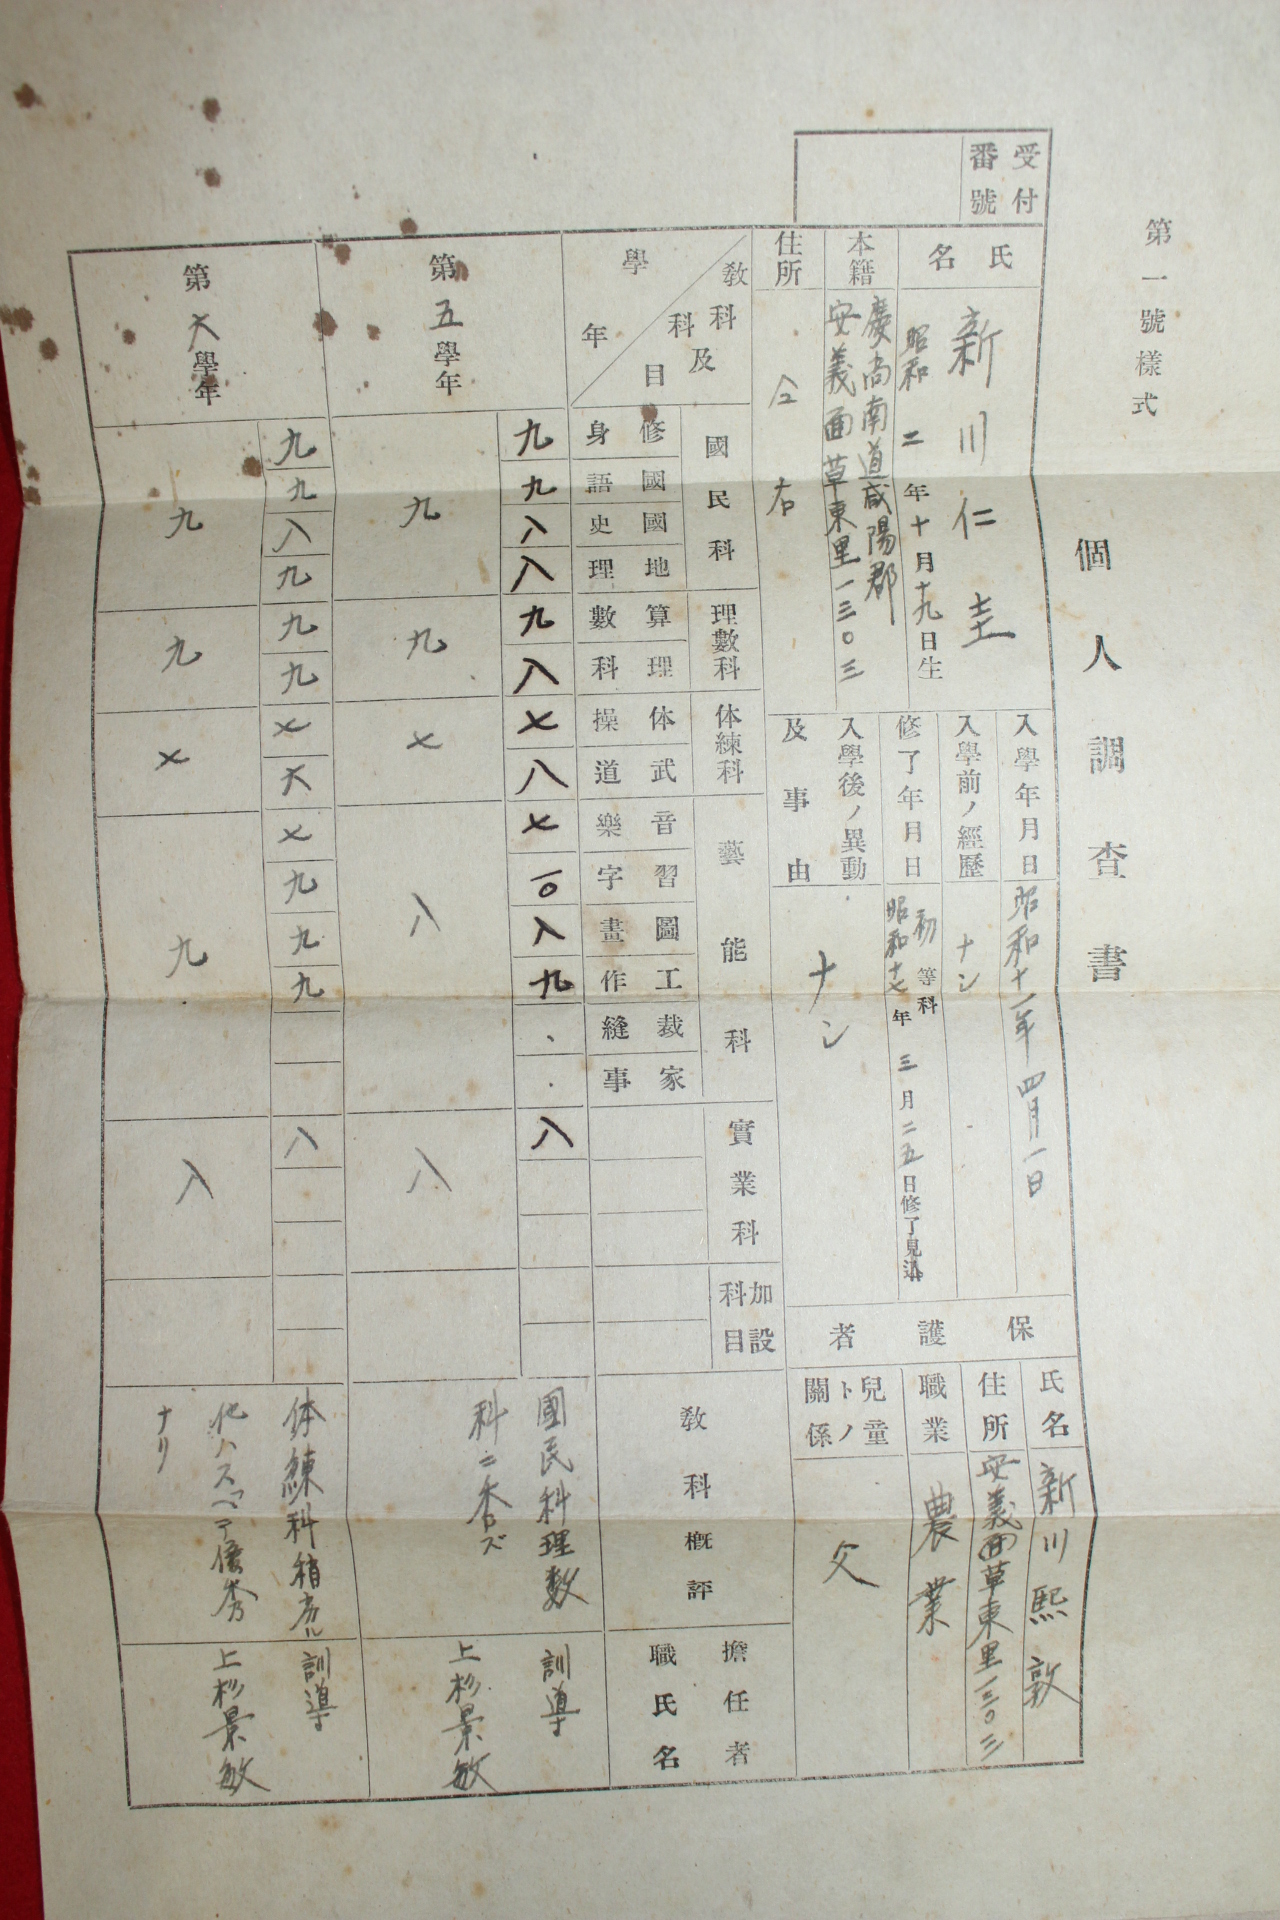 第一號樣式
個人調査書
受付番號
氏名
新川仁圭
昭和二年十月十九日生
本籍
慶尚南道咸陽郡
安義面草東里一三〇三
住所
仝右
入學年月日
昭和十一年四月一日
入學前ノ經歷
ナシ
修了年月日
初等科
昭和十七年三月二五日修了見込
入學後ノ異動
及事由
ナシ
保護者
氏名
新川熙敦
住所
安義面草東里一三〇三
職業
農業
兒童トノ關係
父
教科及科目
學年
國民科
理數科
体練科
藝能科
實業科
加設科目
教科概評
擔任者職氏名
修身
國語
國史
地理
算數
理科
体操
武道
音樂
習字
圖畫
工作
裁縫
家事
第五學年
九
九
八
八
九
八
七
八
七
一〇
八
九
八
九
九
七
八
八
國民科理數
科ニ秀ズ
訓導
上杉景敏
第六學年
九
九
八
九
九
九
七
六
七
九
九
九
八
九
九
七
九
八
体練科稍劣ル
他ハスベテ優秀
ナリ
訓導
上杉景敏